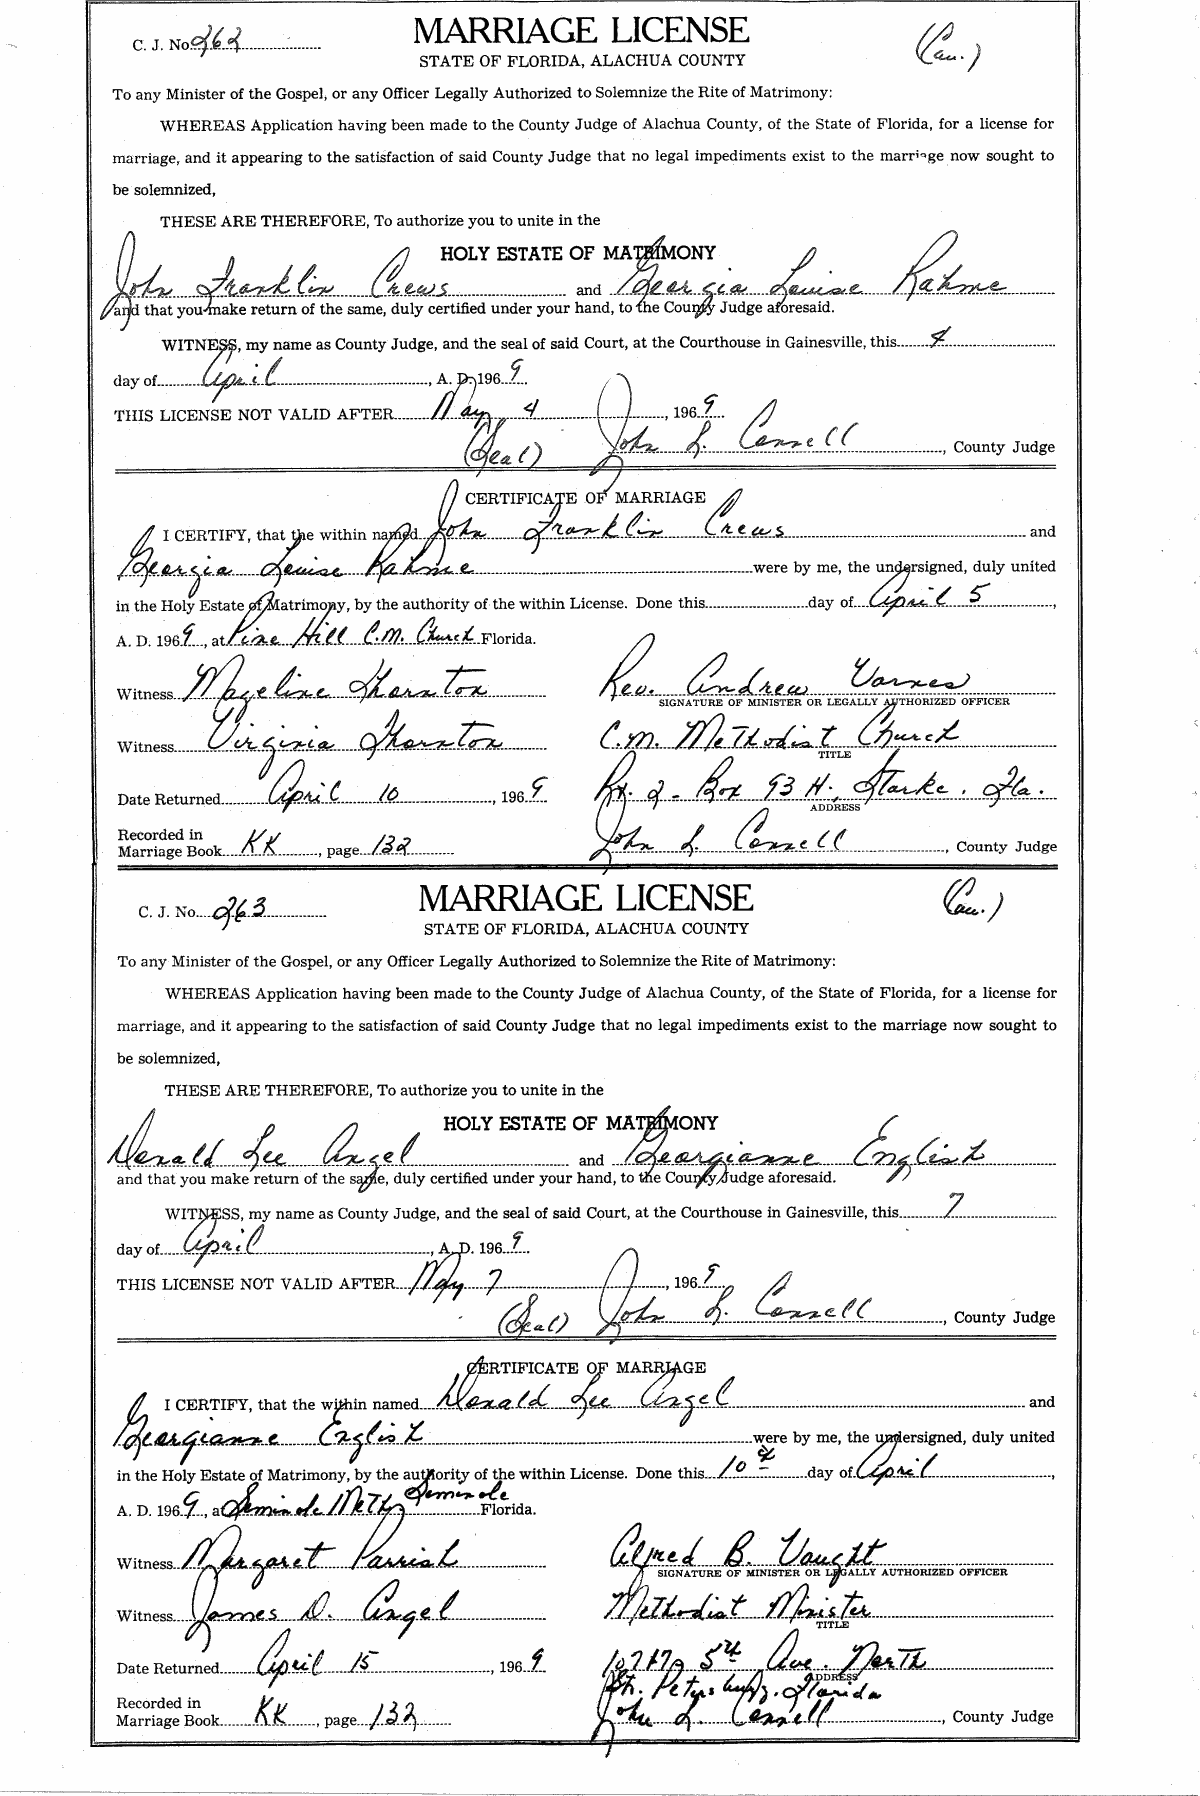 C. J. No. 262
MARRIAGE LICENSE
(Cau.)
STATE OF FLORIDA, ALACHUA COUNTY
To any Minister of the Gospel, or any Officer Legally Authorized to Solemnize the Rite of Matrimony:
WHEREAS Application having been made to the County Judge of Alachua County, of the State of Florida, for a license for
marriage, and it appearing to the satisfaction of said County Judge that no legal impediments exist to the marriage now sought to
be solemnized,
THESE ARE THEREFORE, To authorize you to unite in the
HOLY ESTATE OF MATRIMONY
John Franklin Crews and Georgia Louise Rahme
and that you make return of the same, duly certified under your hand, to the County Judge aforesaid.
WITNESS, my name as County Judge, and the seal of said Court, at the Courthouse in Gainesville, this 4
day of April, A. D. 1969.
THIS LICENSE NOT VALID AFTER May 4, 1969
(Seal) John L. Connell, County Judge
CERTIFICATE OF MARRIAGE
I CERTIFY, that the within named John Franklin Crews and
Georgia Louise Rahme were by me, the undersigned, duly united
in the Holy Estate of Matrimony, by the authority of the within License. Done this day of April 5,
A. D. 1969, at Pine Hill C.M. Church Florida.
Witness Mazeline Thornton Rev. Andrew Varnes
SIGNATURE OF MINISTER OR LEGALLY AUTHORIZED OFFICER
Witness Virginia Thornton C.M. Methodist Church
TITLE
Date Returned April 10, 1969 Rt. 2 - Box 93 H. Starke. Fla.
ADDRESS
Recorded in
Marriage Book KK, page 132 John L. Connell, County Judge
C. J. No. 263
MARRIAGE LICENSE
(Cau.)
STATE OF FLORIDA, ALACHUA COUNTY
To any Minister of the Gospel, or any Officer Legally Authorized to Solemnize the Rite of Matrimony:
WHEREAS Application having been made to the County Judge of Alachua County, of the State of Florida, for a license for
marriage, and it appearing to the satisfaction of said County Judge that no legal impediments exist to the marriage now sought to
be solemnized,
THESE ARE THEREFORE, To authorize you to unite in the
HOLY ESTATE OF MATRIMONY
Donald Lee Angel and Georgianne English
and that you make return of the same, duly certified under your hand, to the County Judge aforesaid.
WITNESS, my name as County Judge, and the seal of said Court, at the Courthouse in Gainesville, this 7
day of April, A. D. 1969.
THIS LICENSE NOT VALID AFTER May 7, 1969
(Seal) John L. Connell, County Judge
CERTIFICATE OF MARRIAGE
I CERTIFY, that the within named Donald Lee Angel and
Georgianne English were by me, the undersigned, duly united
in the Holy Estate of Matrimony, by the authority of the within License. Done this 10th day of April,
A. D. 1969, at Seminole Meth, Seminole Florida.
Witness Margaret Parrish Alfred B. Vaught
SIGNATURE OF MINISTER OR LEGALLY AUTHORIZED OFFICER
Witness James D. Angel Methodist Minister
TITLE
Date Returned April 15, 1969 5th Ave. North
ADDRESS
St. Petersburg. Florida
Recorded in
Marriage Book KK, page 132 John L. Connell, County Judge